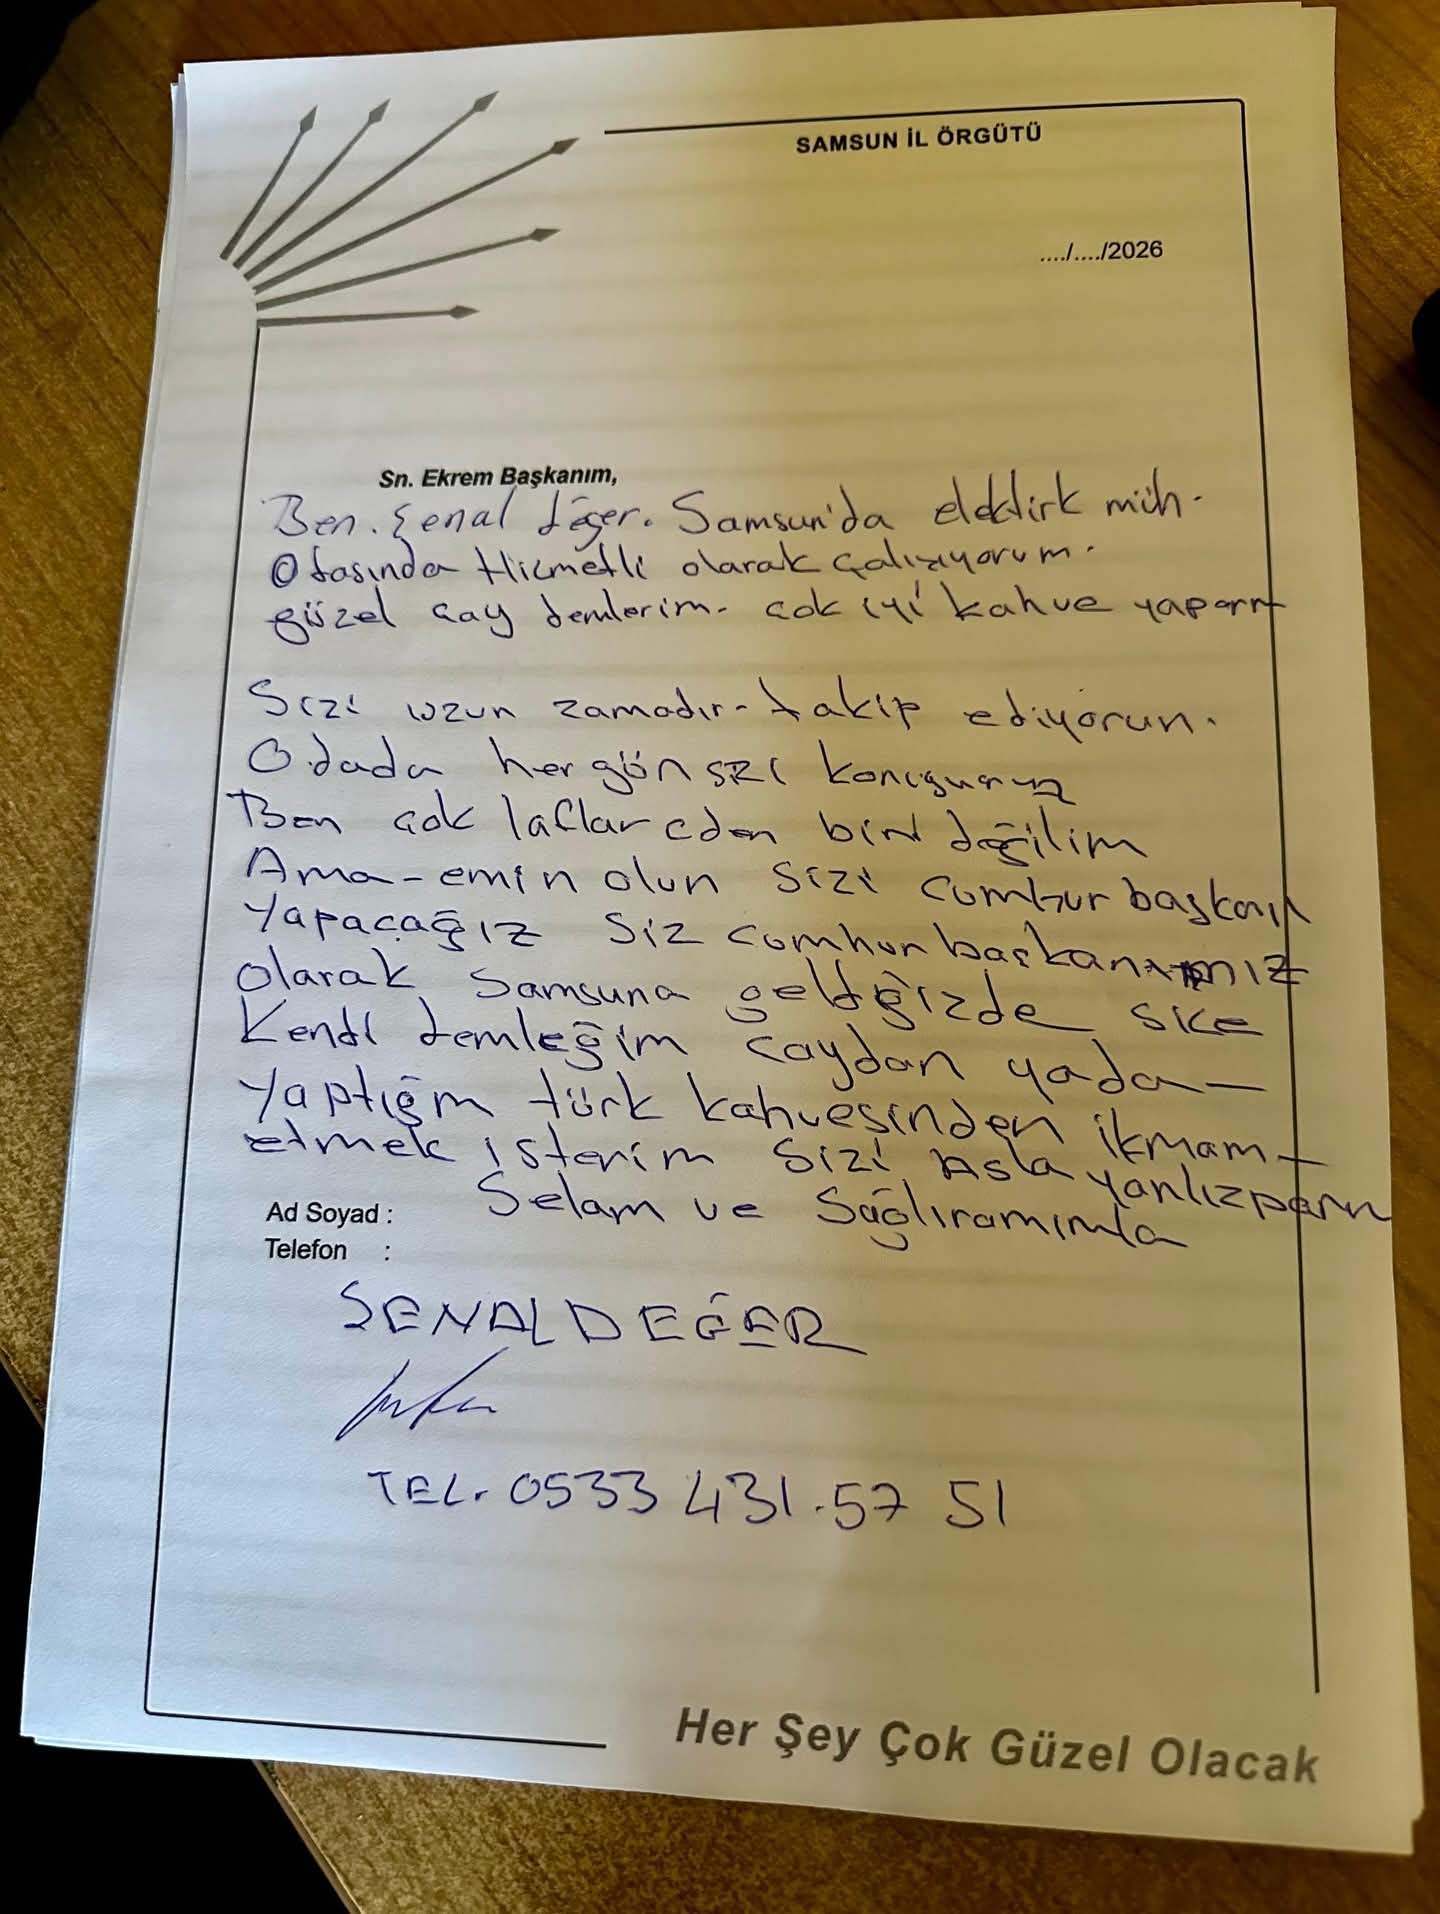 SAMSUN İL ÖRGÜTÜ
..../..../2026
Sn. Ekrem Başkanım,
Ben. Şenal değer. Samsun'da elektirk müh.
Odasında Hizmetli olarak çalışıyorum.
güzel çay demlerim. çok iyi kahve yaparım
Sizi uzun zamadır takip ediyorum.
Odada her gün sizi konuşuruz
Ben çok laflar eden biri değilim
Ama emin olun sizi cumhur başkanı
Yapacağız siz cumhur başkanımız
olarak Samsuna geldiğizde size
Kendi demleğim çaydan yada
Yaptığm türk kahvesinden ikmam
etmek isterim sizi asla
Selam ve Sağlıramımla
Ad Soyad :
Telefon :
SENAL DEĞER
TEL. 0533 431.57 51
Her Şey Çok Güzel Olacak